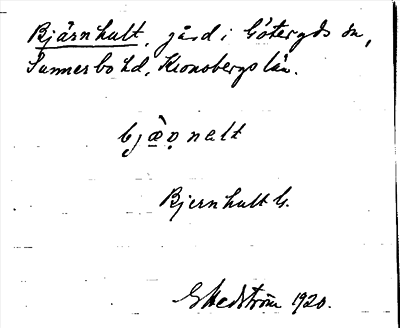 Bjärnhult, gård i Göteryds sn,
Sunnerbo hd, Kronobergs län.
bjæ̠ṇnalt
Bjernhult G.
G Hedström 1920.